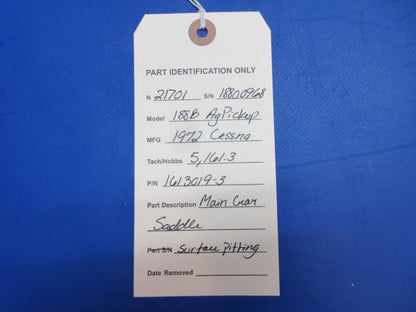 PART IDENTIFICATION ONLY
N 21701 S/N 18800968
Model 188B AgPickup
MFG 1972 Cessna
Tach/Hobbs 5,161.3
P/N 1613019-3
Part Description Main Gear
Saddle
Part S/N Surface Pitting
Date Removed